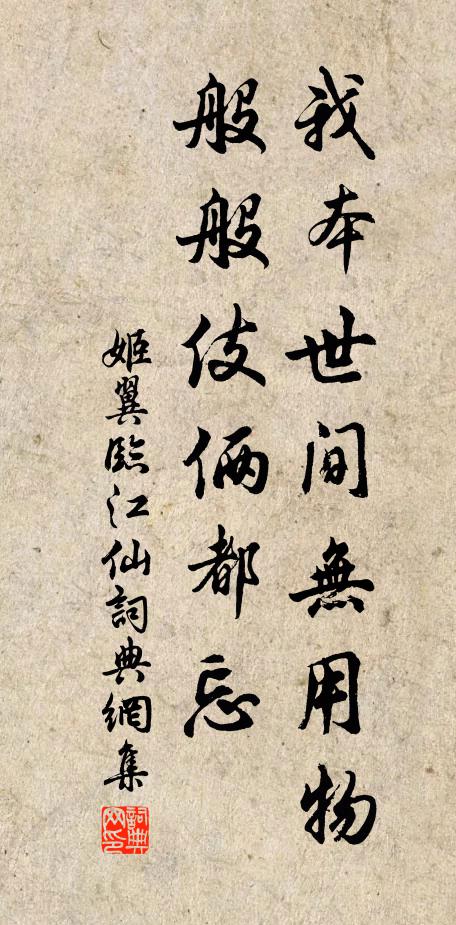 我本世間無用物
般般伎倆都忘
姬翼臨江仙詞典網集
詞典網印